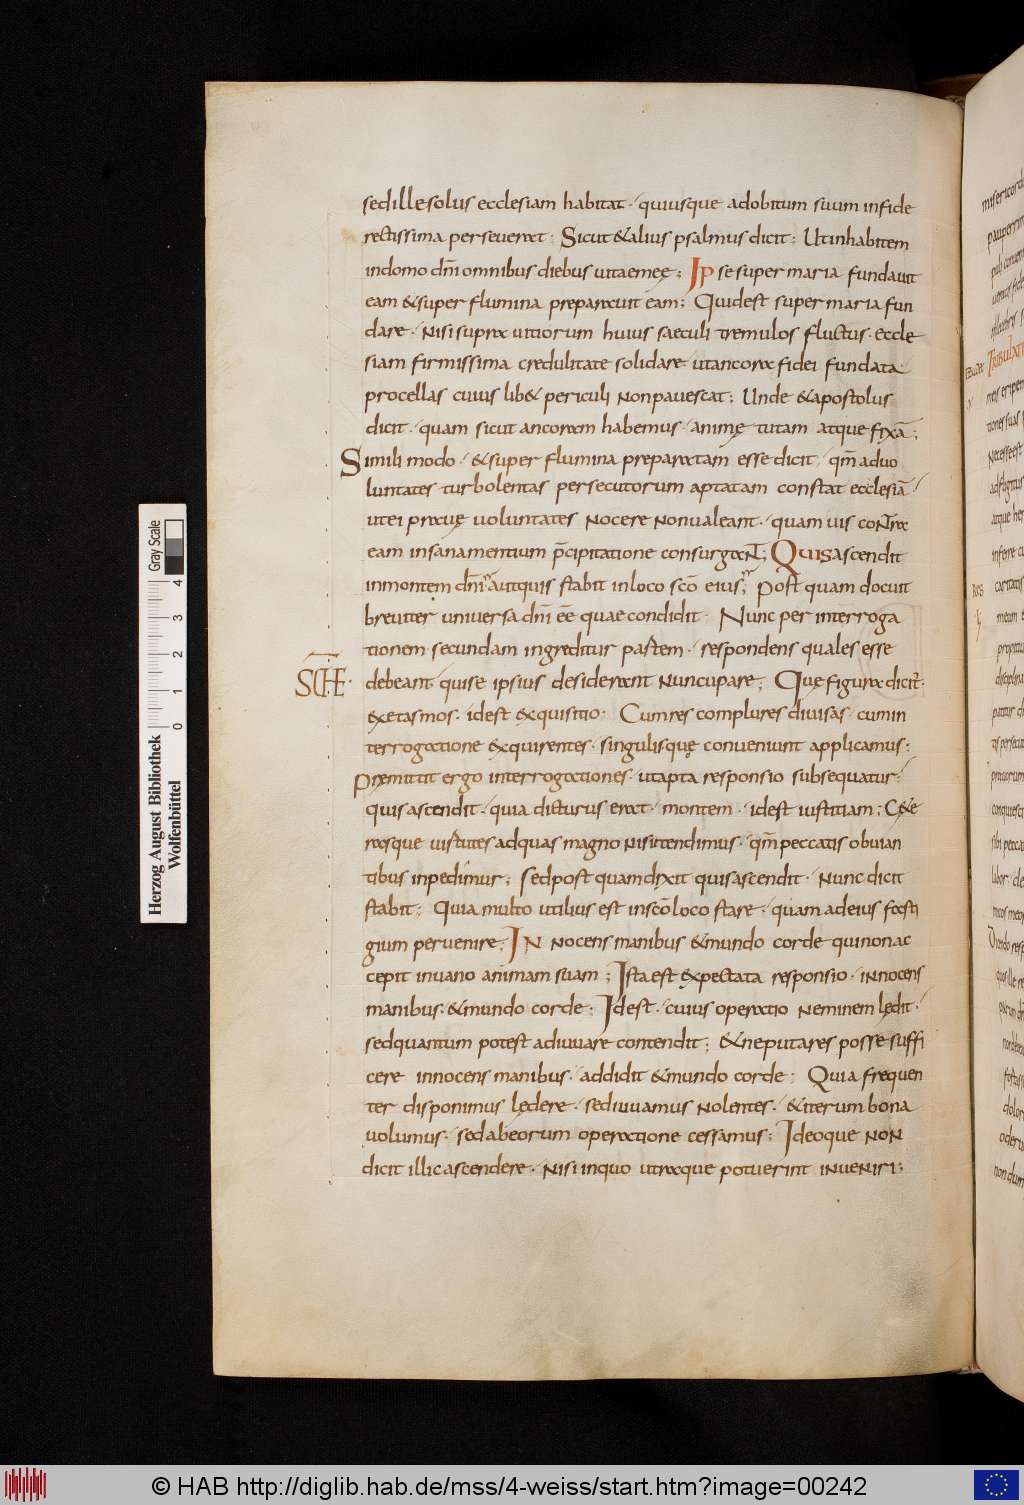 sed ille solus ecclesiam habitat · quiusque adobitum suum infide
rectissima perseverat : Sicut & alius psalmus dicit : Ut inhabitem
indomo dn̄i omnibus diebus vitae meę ; Ipse super maria fundavit
eam & super flumina preparavit eam ; Quid est super maria fun
dare · Nisi supra vitiorum huius saeculi tremulos fluctus · eccle
siam firmissima credulitate solidare · ut ancora fidei fundata
procellas cuius lib& periculi Non pavescat ; Unde & apostolus
dicit · quam sicut ancoram habemus · animę tutam atque fixā ;
Simili modo · & super flumina preparatam esse dicit · qm̄ ad vo
luntates turbolentas persecutorum aptatam constat ecclesiā
ut ei pravę voluntates Nocere Non valeant · quam vis coNtra
eam insana mentium p̄cipitatione consurgaNt ; Quis ascendit
in montem dn̄i aut quis stabit in loco sc̄o eius ; Post quam docuit
breviter universa dn̄i eē quae condidit · Nunc per interroga
tionem secundam ingreditur partem · respondens quales esse
SCHE
debeant qui se ipsius desiderant Nuncupare ; Quę figura dicit̄
exetasmos · id est exquisitio · Cum res complures divisas · cum in
terrogatione exquirentes · singulis quę conveniunt applicamus :
Premittit ergo interrogationes · ut apta responsio subsequatur
quis ascendit · quia dicturus erat · montem · id est iustitiam ; Cęte
rasque virtutes ad quas magno Nisi tendimus · qm̄ peccatis obvian
tibus inpedimur ; Sed post quam dixit quis ascendit · Nunc dicit
stabit ; Quia multo utilius est in sc̄o loco stare · quam ad eius fasti
gium pervenire ; IN Nocens manibus & mundo corde qui non ac
cepit in vano animam suam ; Ista est expectata responsio · iNNocens
manibus · & mundo corde : Id est · cuius operatio Neminem lędit ·
sed quantum potest adiuvare contendit ; & ne putares posse suffi
cere innocens manibus · addidit & mundo corde ; Quia frequen
ter disponimus lędere · sed iuvamus Nolentes · & iterum bona
volumus · sed ab eorum operatione cessamus : Ideoque NoN
dicit illic ascendere · Nisi in quo utraque potuerint iNveNiri ;
Herzog August Bibliothek
Wolfenbüttel
0 1 2 3 4
Gray Scale
© HAB http://diglib.hab.de/mss/4-weiss/start.htm?image=00242